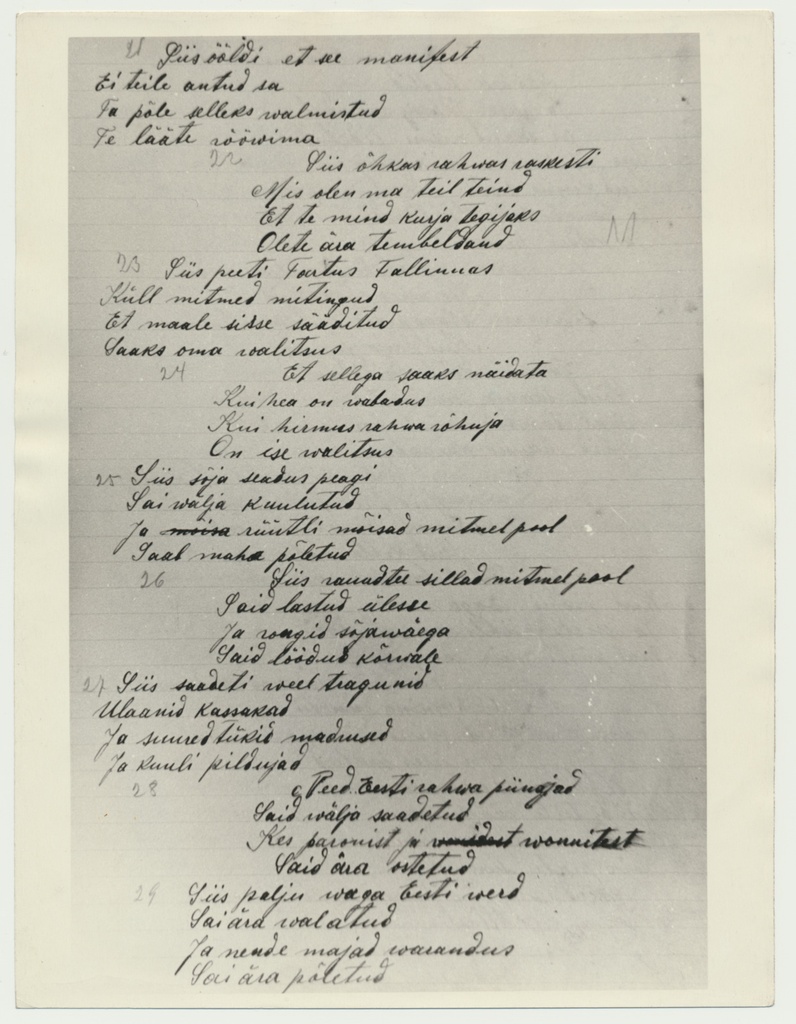 21 Siis ööldi et see manifest
Ei teile antud sa
Ta põle selleks walmistud
Te lääte rööwima
22 Siis õhkas rahwas raskesti
Mis olen ma teil teind
Et te mind kurja tegijaks
Olete ära tembeldand
23 Siis peeti Tartus Tallinnas
Küll mitmed mitingud
Et maale sisse sääditud
Saaks oma walitsus
24 Et sellega saaks näidata
Kui hea on wabadus
Kui hirmus rahwa rõhuja
On ise walitsus
25 Siis sõja seadus peagi
Sai wälja kuulutud
Ja mõisa rüütli mõisad mitmel pool
Saab maha põletud
26 Siis raudtee sillad mitmel pool
Said lastud ülesse
Ja rongid sõjawäega
Said löödud kõrwale
27 Siis saadeti weel tragunid
Ulaanid kassakad
Ja suured tükid madrused
Ja kuuli pildujad
28 Need Eesti rahwa piinajad
Said wälja saadetud
Kes paronist ja wonnitest
Said ära ostetud
29 Siis palju waga Eesti werd
Sai ära walatud
Ja nende majad warandus
Sai ära põletud